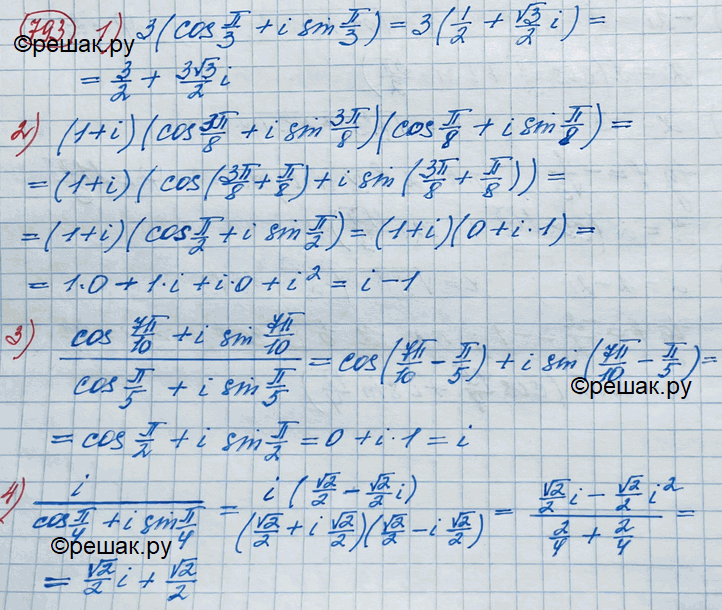 793 1) 3(cos π/3 + i sin π/3) = 3(1/2 + √3/2 i) =
©решак.ру
= 3/2 + 3√3/2 i
2) (1+i)(cos 3π/8 + i sin 3π/8)(cos π/8 + i sin π/8) =
= (1+i)(cos(3π/8 + π/8) + i sin(3π/8 + π/8)) =
= (1+i)(cos π/2 + i sin π/2) = (1+i)(0+i·1) =
= 1·0 + 1·i + i·0 + i² = i - 1
3) (cos 7π/10 + i sin 7π/10)/(cos π/5 + i sin π/5) = cos(7π/10 - π/5) + i sin(7π/10 - π/5) =
©решак.ру
= cos π/2 + i sin π/2 = 0 + i·1 = i
4) i/(cos π/4 + i sin π/4) = i(√2/2 - √2/2 i)/((√2/2 + i √2/2)(√2/2 - i √2/2)) = (√2/2 i - √2/2 i²)/(2/4 + 2/4) =
©решак.ру
= √2/2 i + √2/2